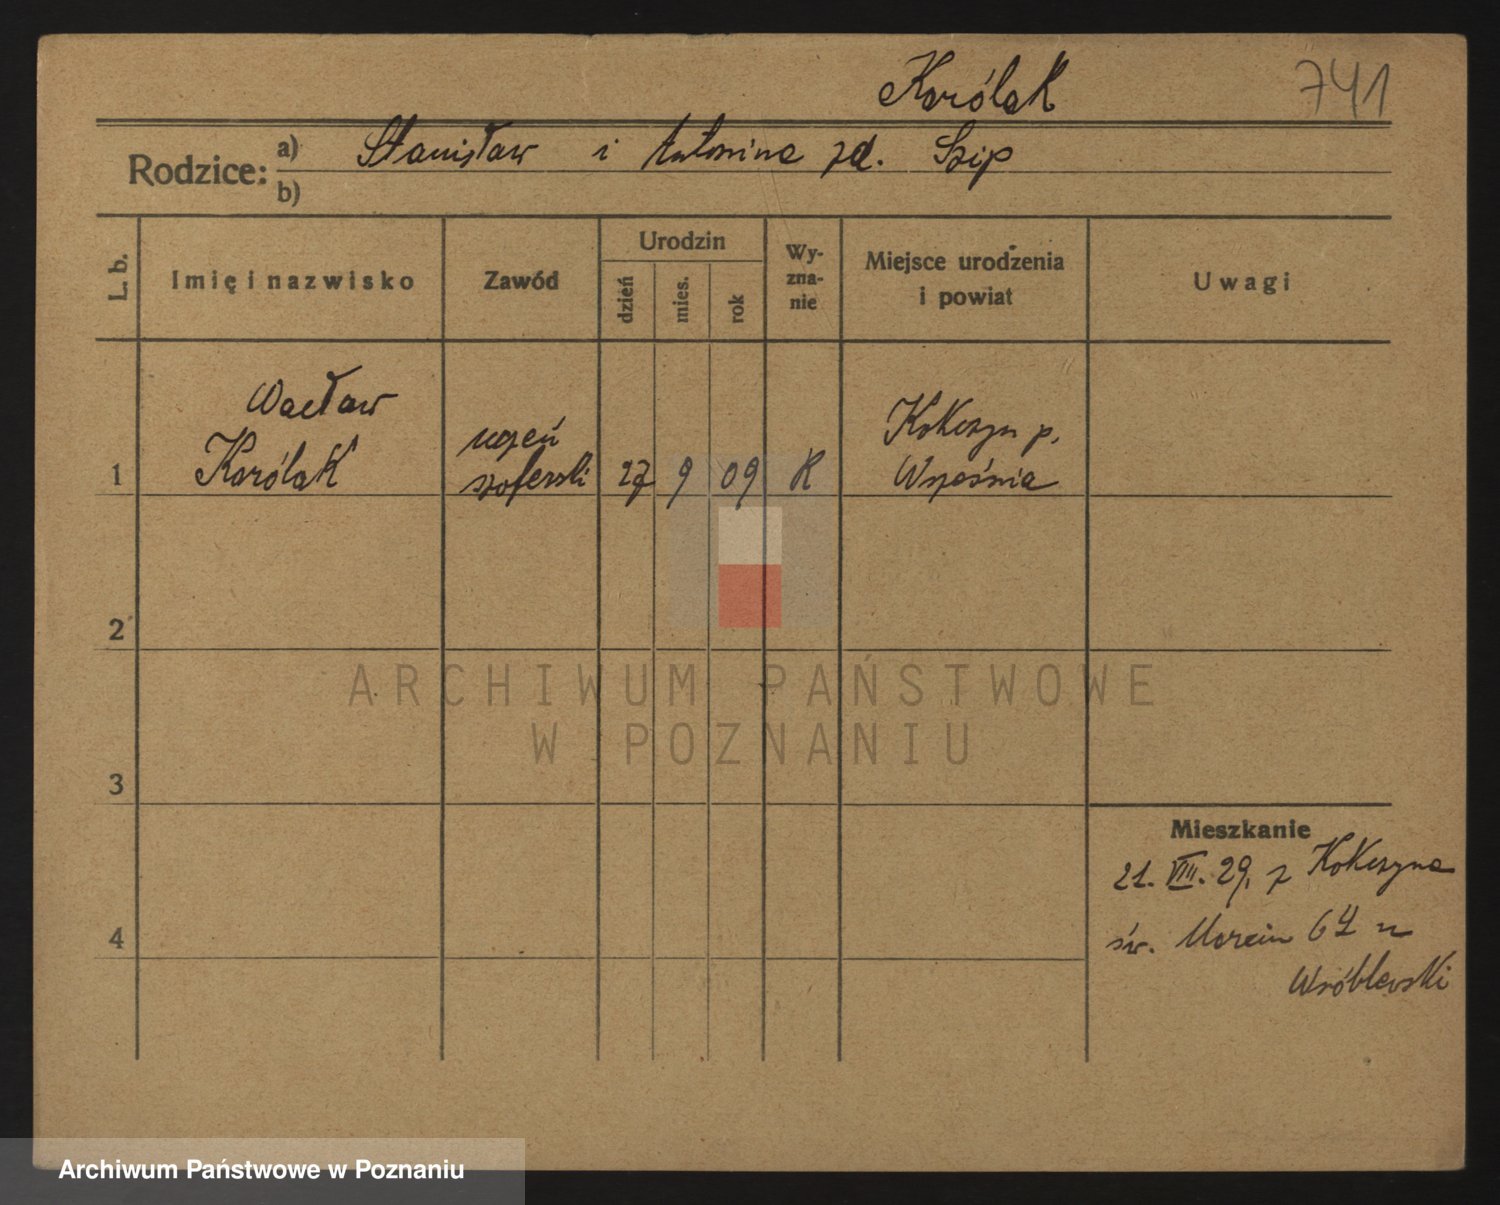 Karólak
741
Rodzice:
a) Stanisław i Antonina zd. Szip
b)
L. b.
Imię i nazwisko
Zawód
Urodzin
dzień
mies.
rok
Wy-
zna-
nie
Miejsce urodzenia
i powiat
Uwagi
Wacław
Karólak
uczeń
szoferski
1
27
9
09
K
Kokczyn p.
Września
2
3
4
Mieszkanie
21. VIII. 29. z Kokczyna
św. Marcin 64 u
Wróblewski
ARCHIWUM PAŃSTWOWE
W POZNANIU
Archiwum Państwowe w Poznaniu